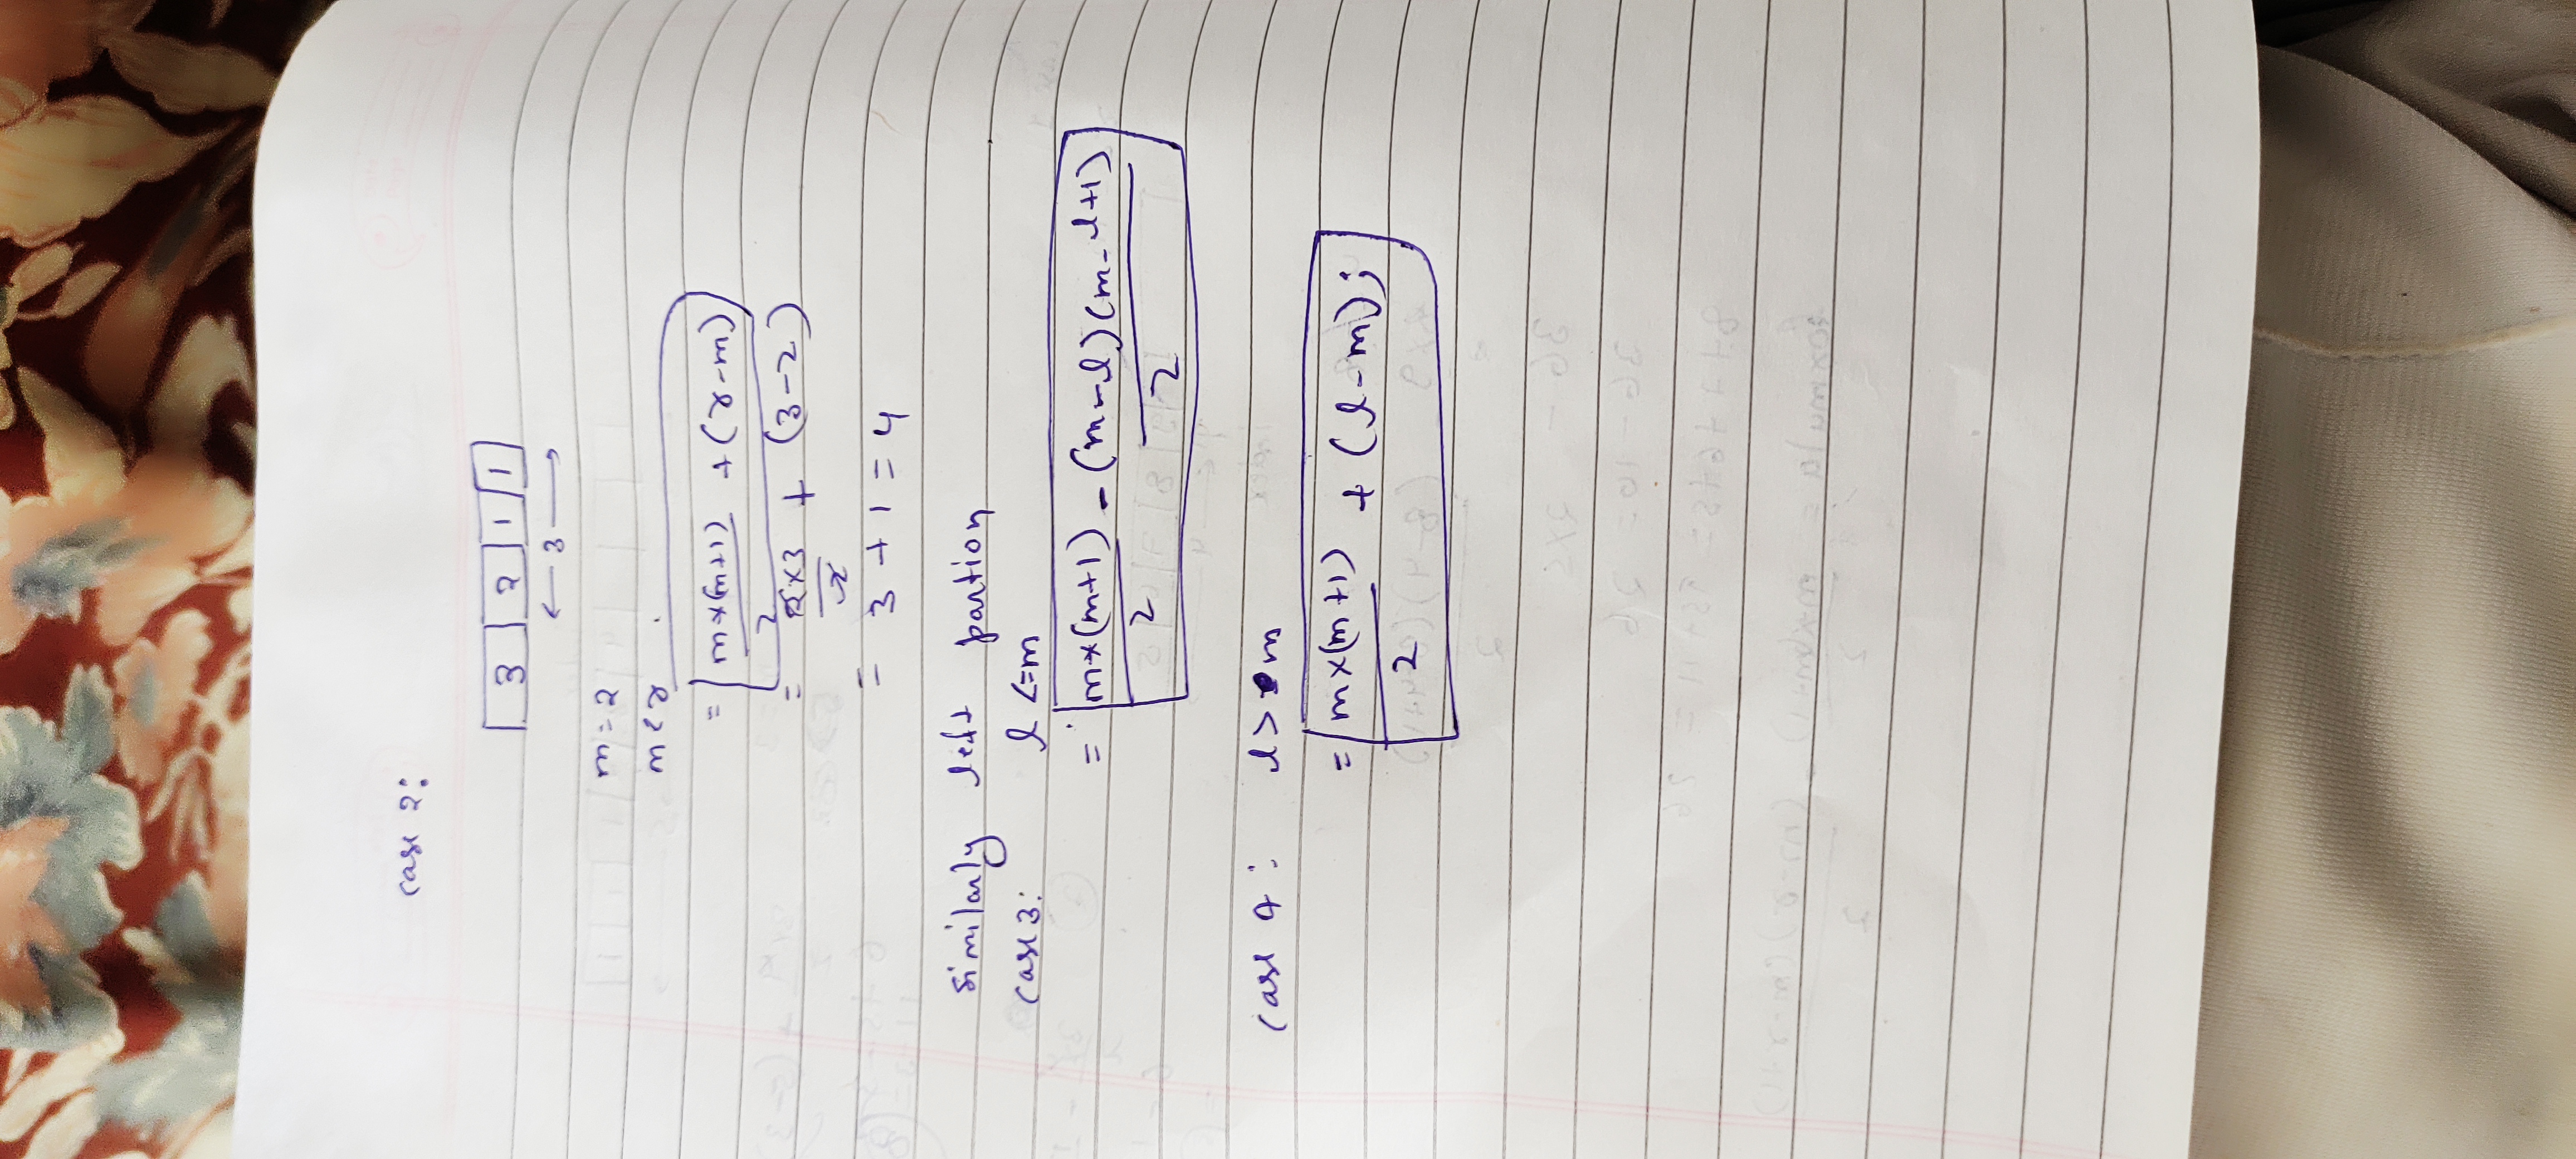 case 2:
3 2 1 1
← 3 →
m = 2
m < r
= m*(m+1)/2 + (r-m)
= 2×3/2 + (3-2)
= 3 + 1 = 4
similarly left partion
case 3: l <= m
= m*(m+1)/2 - (m-l)(m-l+1)/2
case 4: l > m
= m×(m+1)/2 + (l-m);